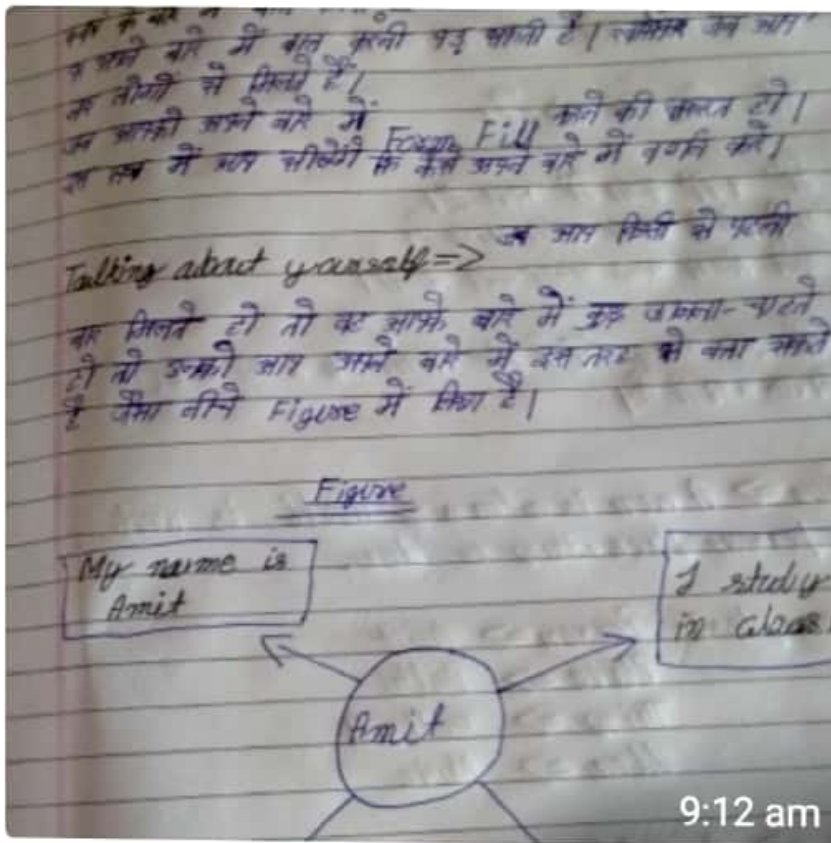 अपने बारे में बात करनी पड़ जाती है। जब आप
लोगों से मिलते हैं।
जब आपको अपने बारे में Form Fill करने की जरूरत हो।
इस सब में आप सीखेंगे कि कैसे अपने बारे में वर्णन करें।
Talking about yourself => जब आप किसी से पहली
बार मिलते हो तो वह आपके बारे में कुछ जानना-चाहते
हो तो उनको आप अपने बारे में इस तरह से बता सकते
है जैसा नीचे Figure में लिखा है।
Figure
My name is
Amit
I study
in class
Amit
9:12 am